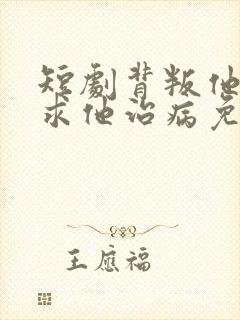 短劇背叛他
求他治病免
王應福